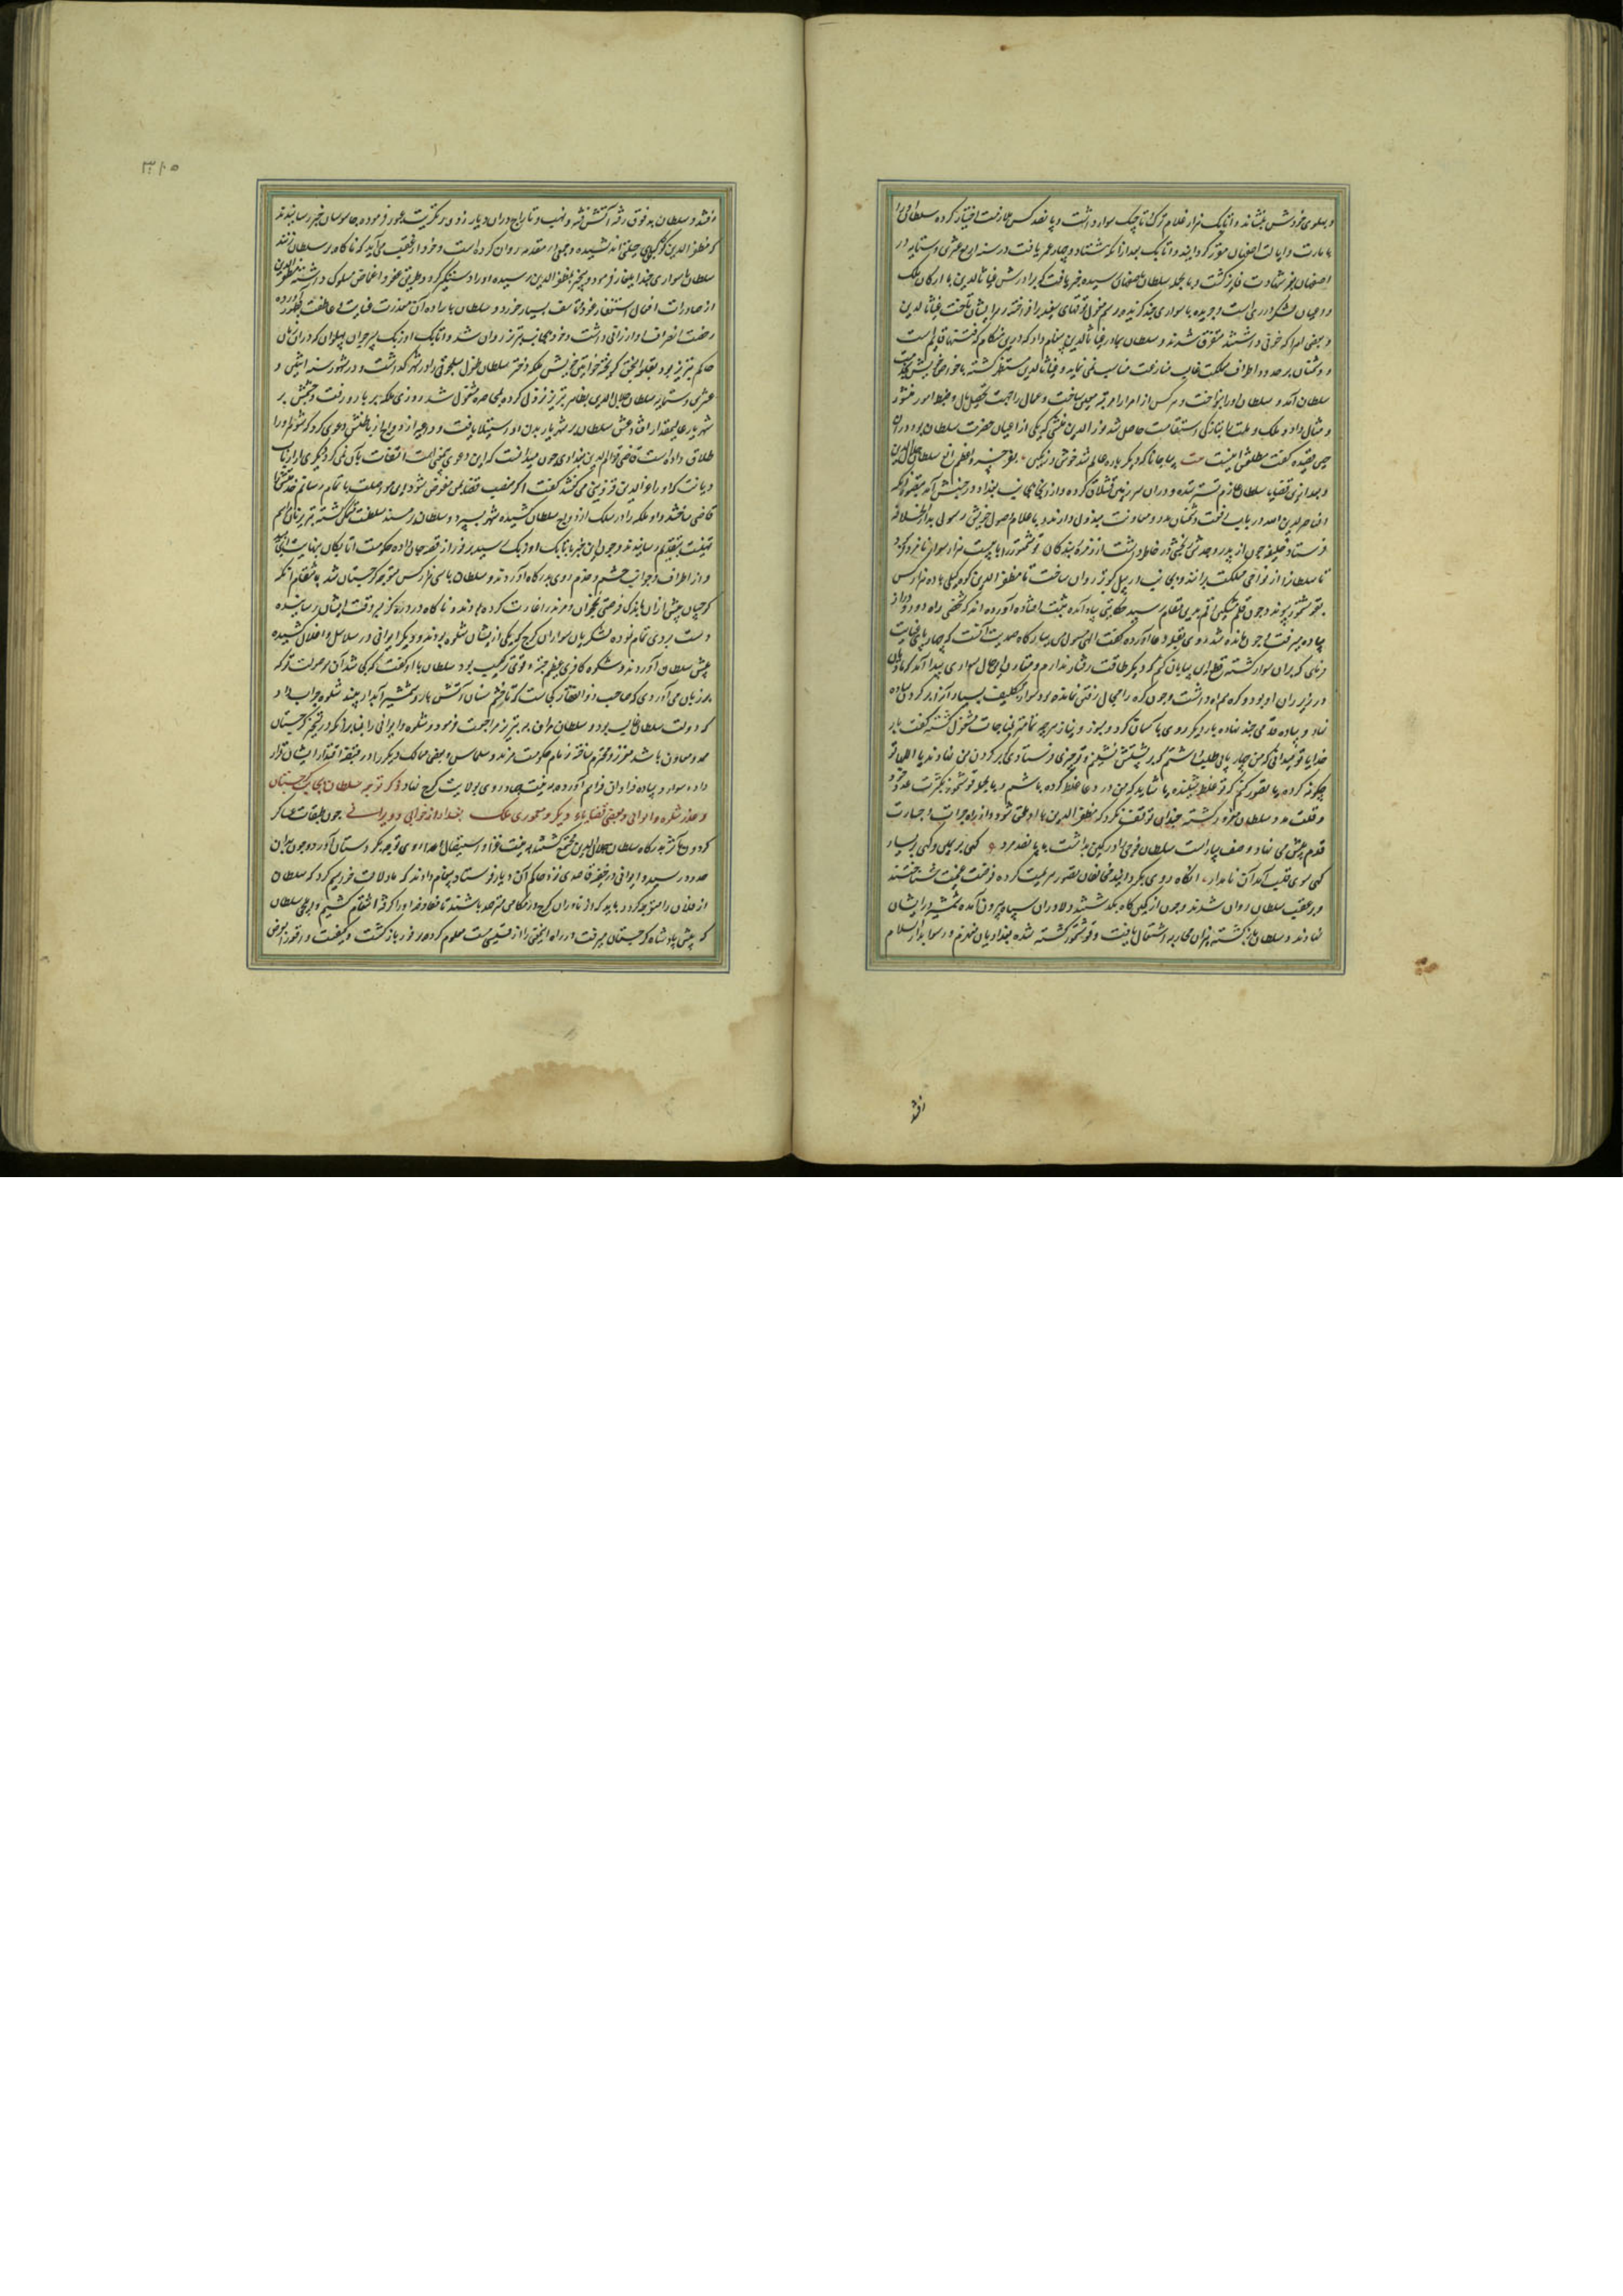 و پهلوی خودش بنشاند و اتابک هزار غلام ترک تاجیک سوار داشت و پانصد کس
بامارت و ایالت اصفهان مقرر گردانید و اتابک بعد از آنکه هشتاد و چهار عمر یافت در سنه اربع عشرین و ستمایه در
اصفهان بعز شهادت فایز گشت و بالجمله سلطان باصفهان رسیده خبر یافت که برادرش غیاث الدین با ارکان ملک
و اعیان لشکر در ری است و جریده با سواری چند گزیده بر رسم مغول توقهای سپید برافراخته بر ایشان تاخت غیاث الدین
و بعضی امرا که خوفی داشتند متفرق شدند و سلطان بمادر غیاث الدین پیغام داد که درین هنگام که فتنها قایم است
و دشمنان بر حدود و اطراف مملکت غالب منازعت مناسب نمی نماید و غیاث الدین مستظهر گشته با خواص خویش بخدمت
سلطان آمد و سلطان او را بنواخت و هر کس از امرا را بمرتبه معین ساخت و عمال را جهت تحصیل مال و ضبط امور منشور
و مثال داد و ملک و ملت را بتازگی استقامت حاصل شد و نور الدین منشی که یکی از اعیان حضرت سلطان بود در
قصیده گفت مطلعش اینست بیت بیا جانا که دیگر باره عالم شد خوش و رنگین بفر خسرو اعظم الغ سلطان جلال الدین
و بعد ازین قضایا سلطان عازم تستر شده و در آن سرزمین قشلاق کرده و از آنجا بجانب بغداد در جنبش آمد بتصور آنکه
الناصر لدین الله در باب دفع دشمنان مدد و معاونت مبذول دارند و باعلام وصول خویش رسولی بدار الخلافه
فرستاد و خلیفه چون از پدر و جدش کینه در خاطر داشت از زمره بندگان قوشتمور را با بیست هزار سوار نامزد کرد
تا سلطان را از نواحی مملکت برانند و بجانب اربیل کبوتر روان ساخت تا مظفر الدین کوکبری با ده هزار کس
بقوشتمور پیوندد و چون قلم مشکین رقم بدین مقام رسید حکایتی بیاد آمده ثبت افتاد آورده اند که شخصی راه دور و دراز
پیاده میرفت و چون مانده شد روی بقبله دعا آورده گفت الهی مسول من از بارگاه احدیت آنست که چهار پای عنایت
فرمای که بر آن سوار گشته قطع این بیابان کنم که دیگر طاقت رفتار ندارم و مقارن این حال سواری پیدا آمد که مادیان
در زیر ران او بود و کره همراه داشت و چون کره را مجال رفتن نمانده بود سوار بتکلیف بسیار آنرا بر گردن پیاده
نهاد و پیاده قدمی چند نهاده بار دیگر روی باسمان کرد و بسوز و نیاز هر چه تمامتر بمناجات مشغول گشته گفت بار
خدایا تو میدانی که من چهار پای طلب داشتم که بر پشتش نشینم و تو چیزی فرستادی که بر گردن من نهادند یا الهی تو
چگونه کرده یا تصور کنم که تو غلط شنیده یا شاید که من در دعا غلط کرده باشم و بالجمله قوشتمور بکثرت عدد خود
و قلت مدد سلطان مغرور گشته چندانی توقف نکرد که مظفر الدین با او ملحق شود و از راه جرات و جسارت
قدم پیش می نهاد و صف بیاراست سلطان فوجی را در کمین بداشت با پانصد مرد گهی بر یمین و گهی بر یسار
گهی سوی قلب آمد آن نامدار انگاه روی بگردانید مخالفان تصور هزیمت کرده فرصت غنیمت شناختند
و بر عقب سلطان روان شدند و چون از کمین گاه بگذشتند دلاوران سپاه بیرون آمده شمشیر در ایشان
نهادند و سلطان نیز بازگشته بمحاربه اشتغال یافت و قوشتمور کشته شده بغدادیان منهزم و رسوا بدار السلام
افتد
۳۱۵
افتند و سلطان بدقوق رفته آتش فتنه و نهب و تاراج در آن دیار زد و بر تکریت عبور فرموده جاسوسان خبر رسانیدند
که مظفر الدین کوکبری رحلت اندیشیده و جمعی را مقدمه روان کرده است و خود از عقب می آید که ناگاه بر سلطان زنند
سلطان با سواری چند ایلغار فرمود و بیخبر بمظفر الدین رسیده او را دستگیر کرد و طریق عفو و اغماض مسلوک داشته مظفر الدین
از صادرات افعال استغفار نمود و تاسف بسیار خورد و سلطان باراده آن معذرت عنایت و عاطفت
رخصت انصراف او ارزانی داشت و خود بجانب تبریز روان شد و اتابک اوزبک پسر جهان پهلوان که در آن زمان
حاکم تبریز بود بقلعه النجق گریخته خواتین خویش ملکه دختر سلطان طغرل سلجوقی را در شهر گذاشت و در شهور سنه اثنین و
عشرین و ستمایه سلطان جلال الدین بظاهر تبریز نزول کرده بمحاصره مشغول شد روزی ملکه بر باره رفت و چشمش بر
شهریار عالیمقدار افتاد عشق سلطان بر شهریار بدن او استیلا یافت و داعیه ازدواج از باطنش دعوی کرد که شوهر او را
طلاق داده است قاضی قوام الدین بغدادی چون میدانست که این دعوی بیحاصلست التفات بآن نمی کرد دیگری از ارباب
دیانت که او را عز الدین قزوینی می گفتند گفت اگر منصب قضا بمن مفوض شود این مواصلت باتمام رسانم
قاضی ساختند و او ملکه را در سلک ازدواج سلطان کشیده شهر بسپرد و سلطان در مسند سلطنت متمکن گشته تبریزیان مراسم
تهنیت بتقدیم رسانیدند و چون این خبر باتابک اوزبک رسید بر فور از غصه جان داده حکومت اتابکان بنهایت انجامید
و از اطراف و جوانب حشم و خدم روی بدرگاه آوردند و سلطان با سی هزار کس متوجه گرجستان شد بانتقام آنکه
گرجیان پیش ازان باندک فرصتی نخجوان و مرند را غارت کرده بودند و ناگاه در دره کزنی بوقت ایشان رسانیده
دست بردی تمام نموده لشکریان سواران گرج که یکی از ایشان شلوه بود و دیگر ایوانی در سلاسل و اغلال کشیده
پیش سلطان آوردند و شلوه کافری عظیم جثه و قوی ترکیب بود سلطان با او گفت که کجا شد آن صولت تو که
بر زبان می آوردی که صاحب ذو الفقار کجاست که تا زخم سنان آتش بار و شمشیر آبدار بیند شلوه جواب داد
که دولت سلطان غالب بود و سلطان مظفر بتبریز مراجعت فرمود و شلوه و ایوانی را بنابر آنکه در تسخیر گرجستان
ممد و معاون باشند معزز و محترم ساخته زمام حکومت مرند و سلماس و بعضی ممالک دیگر را در قبضه اقتدار ایشان قرار
داده سوار و پیاده فراوان فراهم آورده بعزیمت جهاد روی بولایت گرج نهاد ذکر توجه سلطان بجانب گرجستان
و غدر شلوه و ایوانی و بعضی قضایاء دیگر و معموری ملک بعد از خرابی و ویرانی چون طبقات عساکر
گردون مآثر بدرگاه سلطان جلال الدین مجتمع گشتند بعزیمت غزا و استیصال اعدا روی توجه بگرجستان آورد و چون بدان
حدود رسید و ایوانی در خفیه قاصدی نزد حاکم آن دیار فرستاد پیغام دادند که ما دلالت خواهیم کرد که سلطان
از فلان راه متوجه گردد باید که از ناوران گرج در مکامن مترصد باشند تا مفاجا او را گرفته انتقام کشیم و ایلچی سلطان
که پیش پادشاه گرجستان میرفت در راه این معنی را از قسیسی معلوم کرده بر فور بازگشت و کیفیت واقعه را بعرض